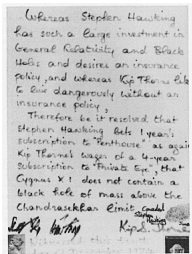 Whereas Stephen Hawking
has such a large investment in
General Relativity and Black
Holes and desires an insurance
policy, and whereas Kip Thorne likes
to live dangerously without an
insurance policy,
Therefore be it resolved that
Stephen Hawking bets 1 year's
subscription to "Penthouse" as against
Kip Thorne's wager of a 4-year
subscription to "Private Eye", that
Cygnus X 1 does not contain a
black hole of mass above the
Chandrasekhar limit
Kip S. Thorne